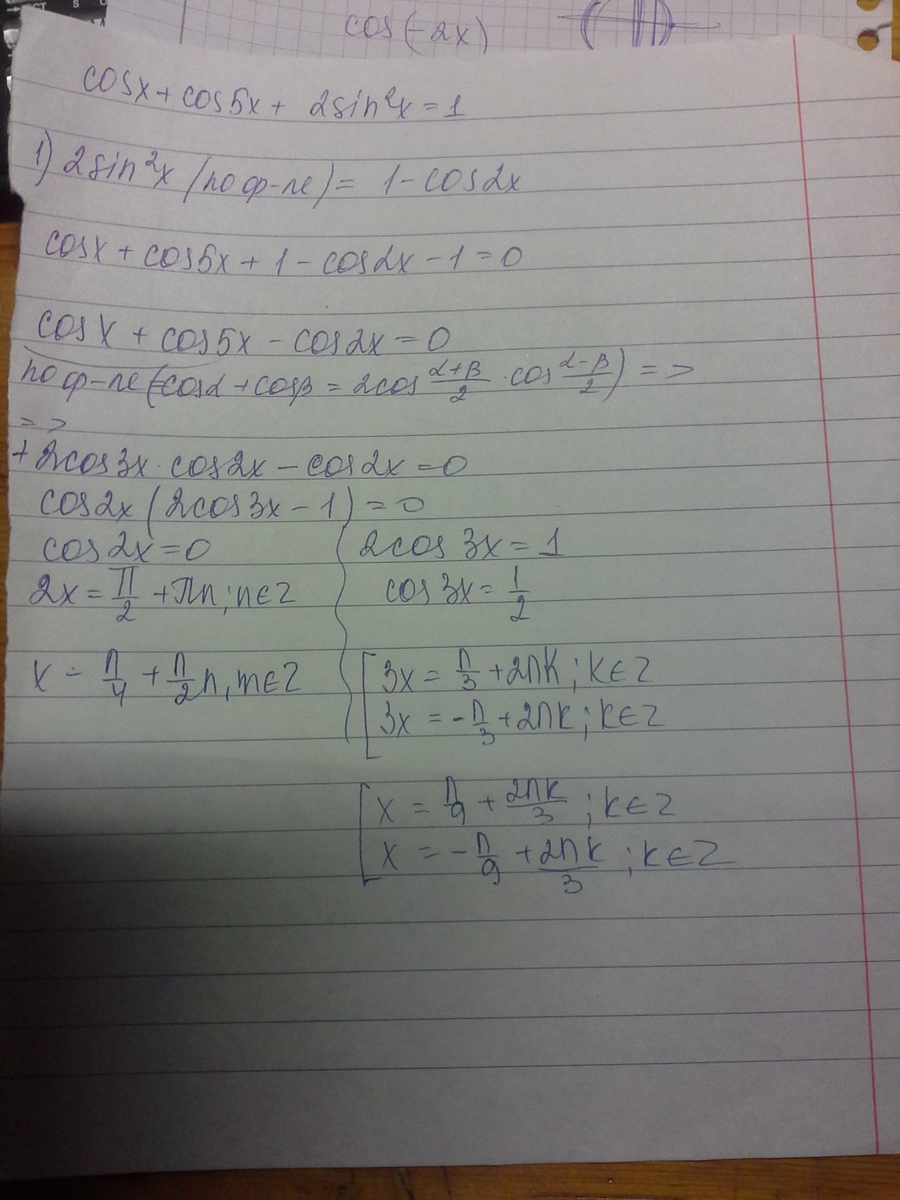 cos(-2x)
cosx + cos5x + 2sin²x = 1
1) 2sin²x (по ф-ле) = 1 - cos2x
cosx + cos5x + 1 - cos2x - 1 = 0
cosx + cos5x - cos2x = 0
по ф-ле (cosα + cosβ = 2cos (α+β)/2 · cos (α-β)/2) = >
= >
+ 2cos3x · cos2x - cos2x = 0
cos2x (2cos3x - 1) = 0
cos2x = 0 2cos3x = 1
2x = π/2 + πn; n∈Z cos3x = 1/2
x = π/4 + π/2 n, m∈Z [3x = π/3 + 2πk; k∈Z
3x = -π/3 + 2πk; k∈Z
[x = π/9 + 2πk/3; k∈Z
x = -π/9 + 2πk/3; k∈Z